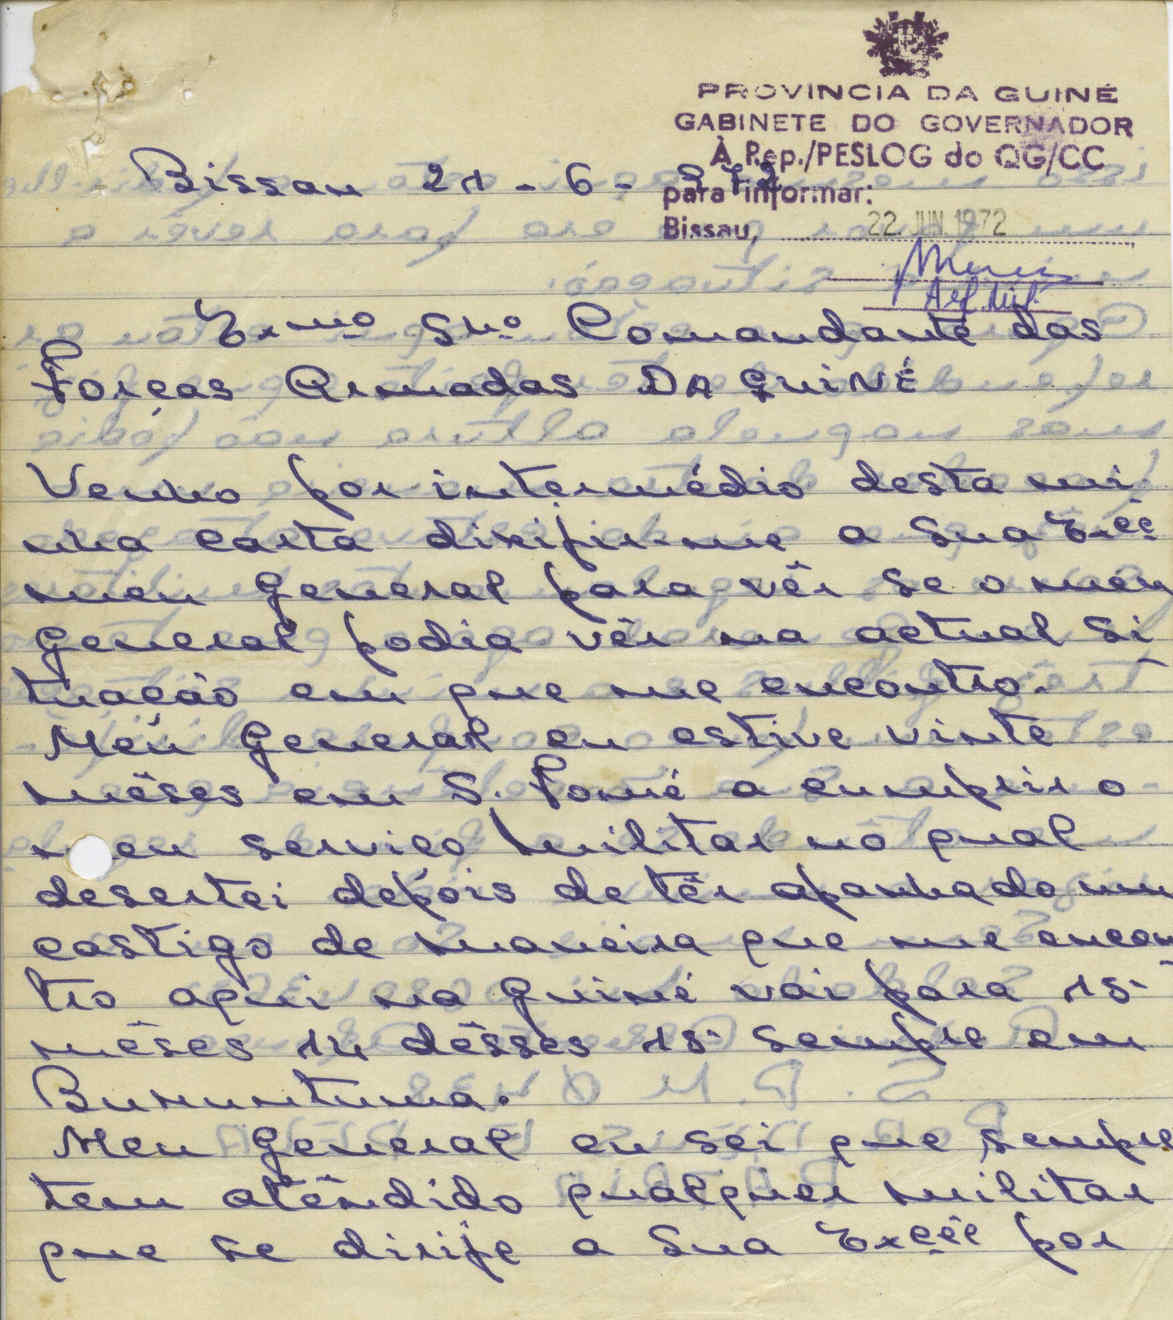 PROVINCIA DA GUINÉ
GABINETE DO GOVERNADOR
À Rep./PESLOG do QG/CC
para informar:
Bissau, 22 JUN. 1972
Bissau 21-6-972
Exmo Sno Comandante das
Forças Armadas DA GUINÉ
Venho por intermédio desta mi
nha carta dirijir-me a Sua Excê
meu General para vêr se o meu
General podia vêr na actual Si
tuação em que me encontro.
Meu General eu estive vinte
mêses em S. Tomé a cumprir o
meu serviço Militar no qual
desertei depois de têr apanhado um
castigo de maneira que me encon
tro aqui na Guiné vai para 15
mêses 14 dêsses 15 sempre em
Burruntuma.
Meu General eu sei que sempre
tem atêndido qualquer militar
que se dirije a Sua Excêc por